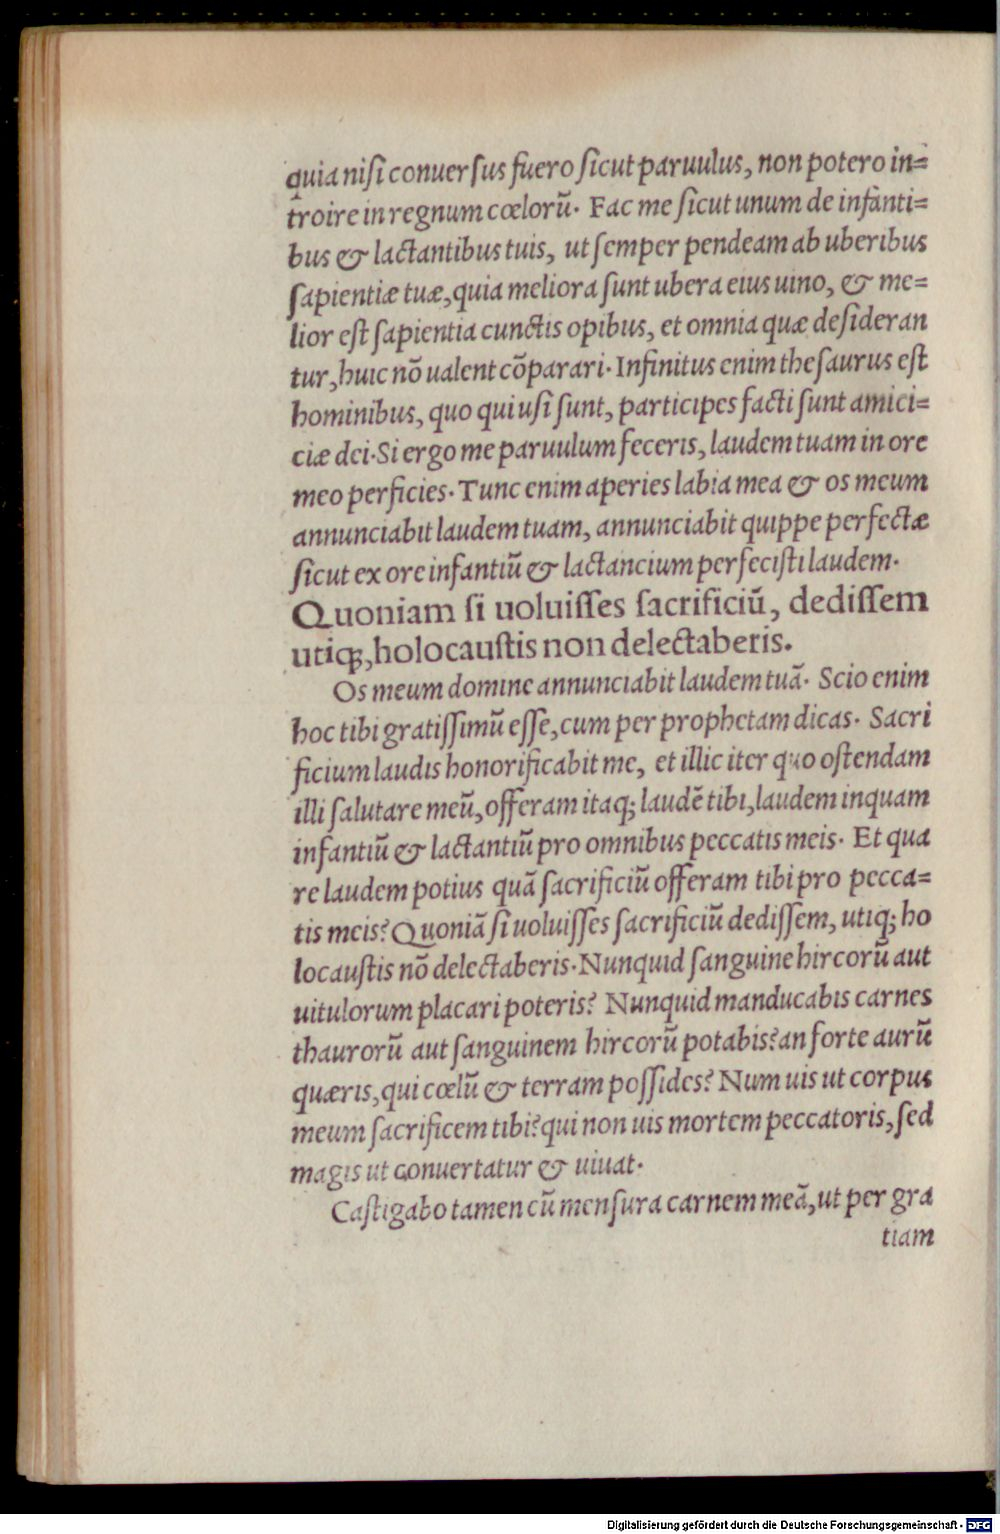 quia nisi conuersus fuero sicut paruulus, non potero in=
troire in regnum cœlorũ. Fac me sicut unum de infanti=
bus & lactantibus tuis, ut semper pendeam ab uberibus
sapientiæ tuæ, quia meliora sunt ubera eius uino, & me=
lior est sapientia cunctis opibus, et omnia quæ desideran
tur, huic nõ ualent cõparari. Infinitus enim thesaurus est
hominibus, quo qui usi sunt, participes facti sunt amici=
ciæ dei. Si ergo me paruulum feceris, laudem tuam in ore
meo perficies. Tunc enim aperies labia mea & os meum
annunciabit laudem tuam, annunciabit quippe perfectæ
sicut ex ore infantiũ & lactancium perfecisti laudem.
Quoniam si uoluisses sacrificiũ, dedissem
utiq;, holocaustis non delectaberis.
Os meum domine annunciabit laudem tuã. Scio enim
hoc tibi gratissimũ esse, cum per prophetam dicas. Sacri
ficium laudis honorificabit me, et illic iter quo ostendam
illi salutare meũ, offeram itaq; laudẽ tibi, laudem inquam
infantiũ & lactantiũ pro omnibus peccatis meis. Et qua
re laudem potius quã sacrificiũ offeram tibi pro pecca=
tis meis? Quoniã si uoluisses sacrificiũ dedissem, utiq; ho
locaustis nõ delectaberis. Nunquid sanguine hircorũ aut
uitulorum placari poteris? Nunquid manducabis carnes
thaurorũ aut sanguinem hircorũ potabis? an forte aurũ
quæris, qui cœlũ & terram possides? Num uis ut corpus
meum sacrificem tibi? qui non uis mortem peccatoris, sed
magis ut conuertatur & uiuat.
Castigabo tamen cũ mensura carnem meã, ut per gra
tiam
Digitalisierung gefördert durch die Deutsche Forschungsgemeinschaft - DFG